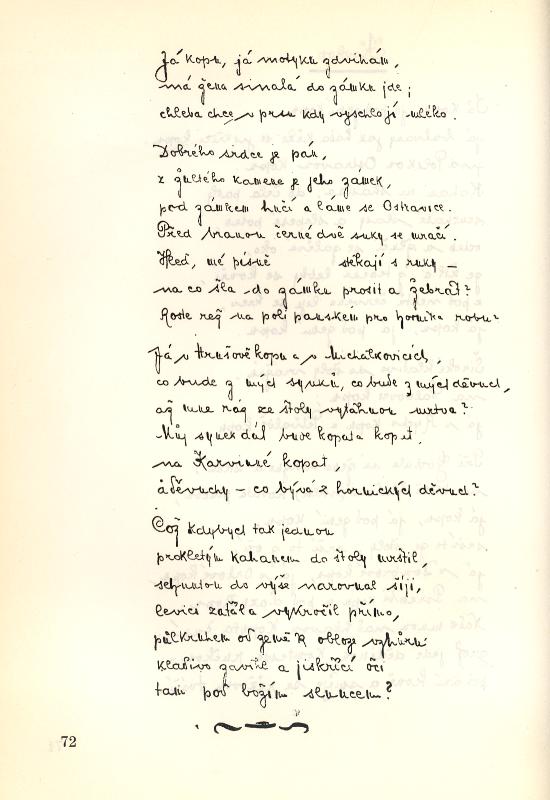 Já kopu, já motyku zdvihám,
má žena sinalá do zámku jde;
chleba chce, v prsu kdy vyschlo jí mléko.
Dobrého srdce je pán,
z žlutého kamene je jeho zámek,
pod zámkem hučí a láme se Ostravice.
Před branou černé dvě suky se mračí.
stékají s ruky —
na co šla do zámku prosit a žebrat?
Roste rež na poli panském pro horníka robu?
Já v Hrušově kopu a v Michalkovicích,
co bude z mých synků, co bude z mých děvuch,
až mne ráz ze štoly vytáhnou mrtva?
Můj synek dál bude kopat a kopat,
na Karvinné kopat,
a děvuchy — co bývá z hornických děvuch?
Což kdybych tak jednou
prokletým kahanem do štoly mrštil,
sehnutou do výše narovnal šíji,
levici zaťala vykročil přímo,
půlkruhem od země k obloze vzhůru
kladivo zavihl a jiskřící oči
tam pod božím sluncem?
72